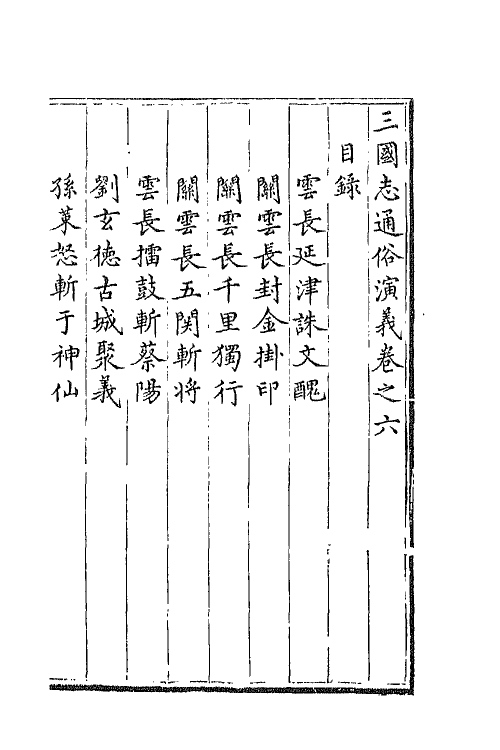 三國志通俗演義卷之六
目錄
雲長延津誅文醜
關雲長封金掛印
關雲長千里獨行
關雲長五関斬将
雲長擂鼓斬蔡陽
劉玄徳古城聚義
孫策怒斬于神仙